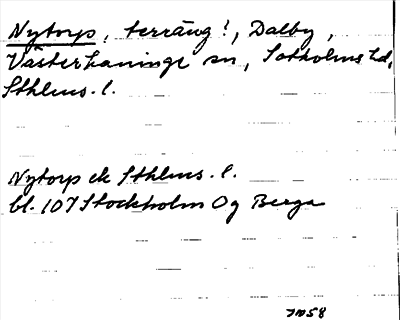 Nytorp, terräng!, Dalby,
Västerhaninge sn, Sotholms hd,
Sthlms. l.
Nytorp ek Sthlms. l.
bl. 107 Stockholm Og Berga